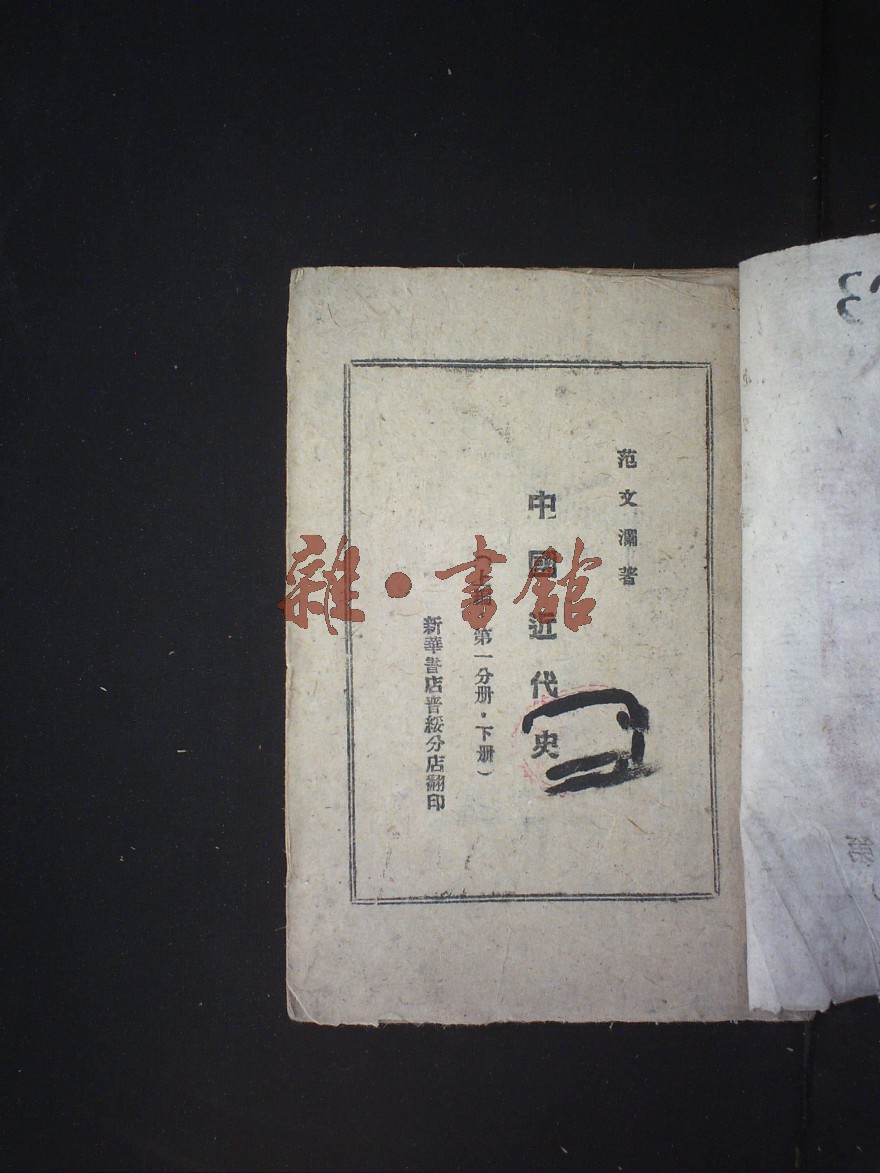 范文瀾著
中國近代史
(上編·第一分册·下册)
新華書店晋綏分店翻印
雜·書館